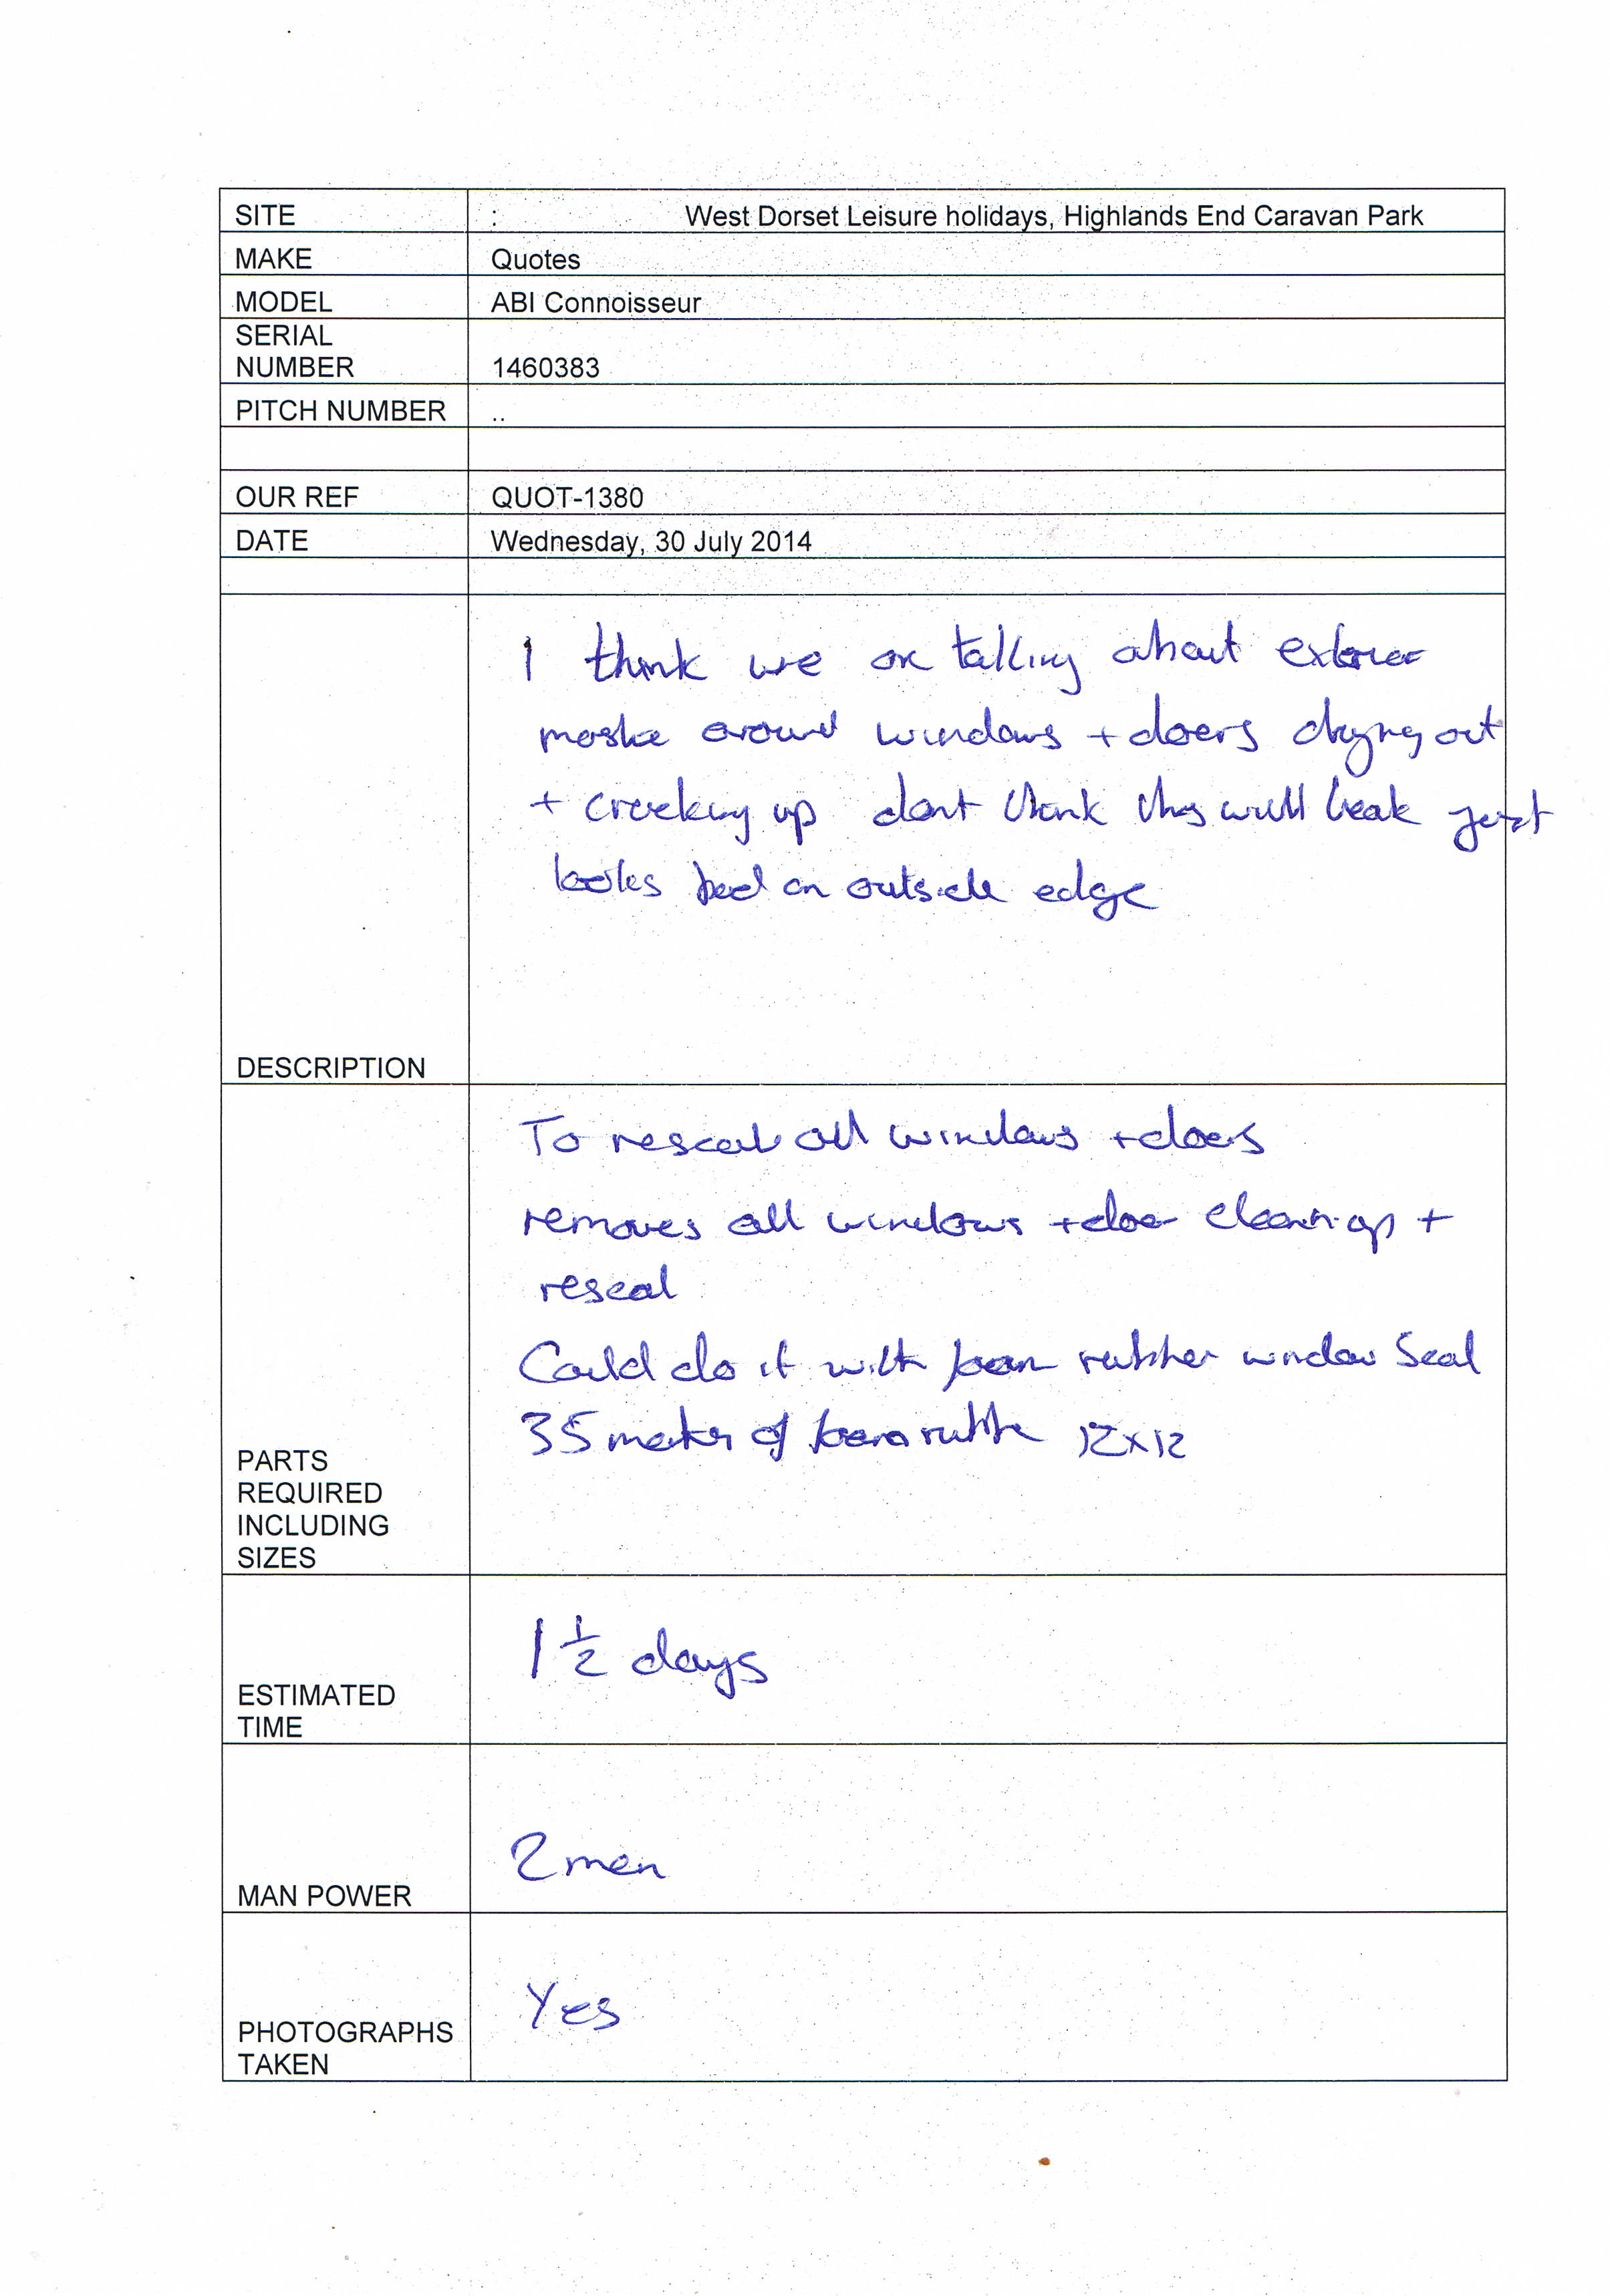 SITE : West Dorset Leisure holidays, Highlands End Caravan Park
MAKE Quotes
MODEL ABI Connoisseur
SERIAL
NUMBER 1460383
PITCH NUMBER ..
OUR REF QUOT-1380
DATE Wednesday, 30 July 2014
I think we are talking about exterior
around windows + doors drying out
+ cracking up dont think this will leak just
looks bad on outside edge
DESCRIPTION
To reseal all windows + doors
removes all windows + door clean up +
reseal
Could do it with foam rubber window Seal
35 meter of foam rubber 12x12
PARTS
REQUIRED
INCLUDING
SIZES
1 1/2 days
ESTIMATED
TIME
2 men
MAN POWER
Yes
PHOTOGRAPHS
TAKEN